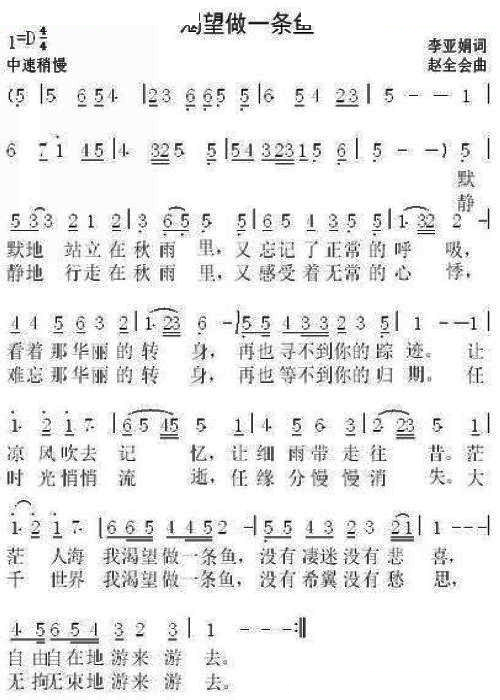 渴望做一条鱼
1=D 4/4
李亚娟词
中速稍慢
赵全会曲
(5 | 5 6 5 4 | 2 3 6 6 5 5 | 6 5 4 2 3 | 5 - - 1 |
6 7 1 4 5 | 4 3 2 5 5 | 5 4 3 2 3 1 5 6 | 5 - - ) 5 |
默
静
5 3 3 2 1 2 | 3 6 5 5 5 | 6 5 4 3 5 5 | 1 3 2 2 - |
默地 站立在秋雨 里，又忘记了正常的呼 吸，
静地 行走在秋雨 里，又感受着无常的心 悸，
4 4 5 6 3 2 | 1 2 3 6 - | 5 5 4 3 3 2 3 5 | 1 - - 1 |
看着那华丽的转 身，再也寻不到你的踪 迹。让
难忘那华丽的转 身，再也等不到你的归 期。任
1 2 1 7 | 6 5 4 5 5 1 | 4 5 6 3 | 2 2 3 5 1 |
凉 风吹去 记 忆，让细雨带走往 昔。茫
时 光悄悄 流 逝，任缘分慢慢消 失。大
1 2 1 7 | 6 6 5 4 5 2 5 | 5 4 3 2 3 2 1 | 1 - - - |
茫 人海 我渴望做一条鱼，没有凄迷没有悲 喜，
千 世界 我渴望做一条鱼，没有希翼没有愁 思，
4 5 6 5 4 3 2 3 | 1 - - - :||
自由自在地游来游 去。
无拘无束地游来游 去。